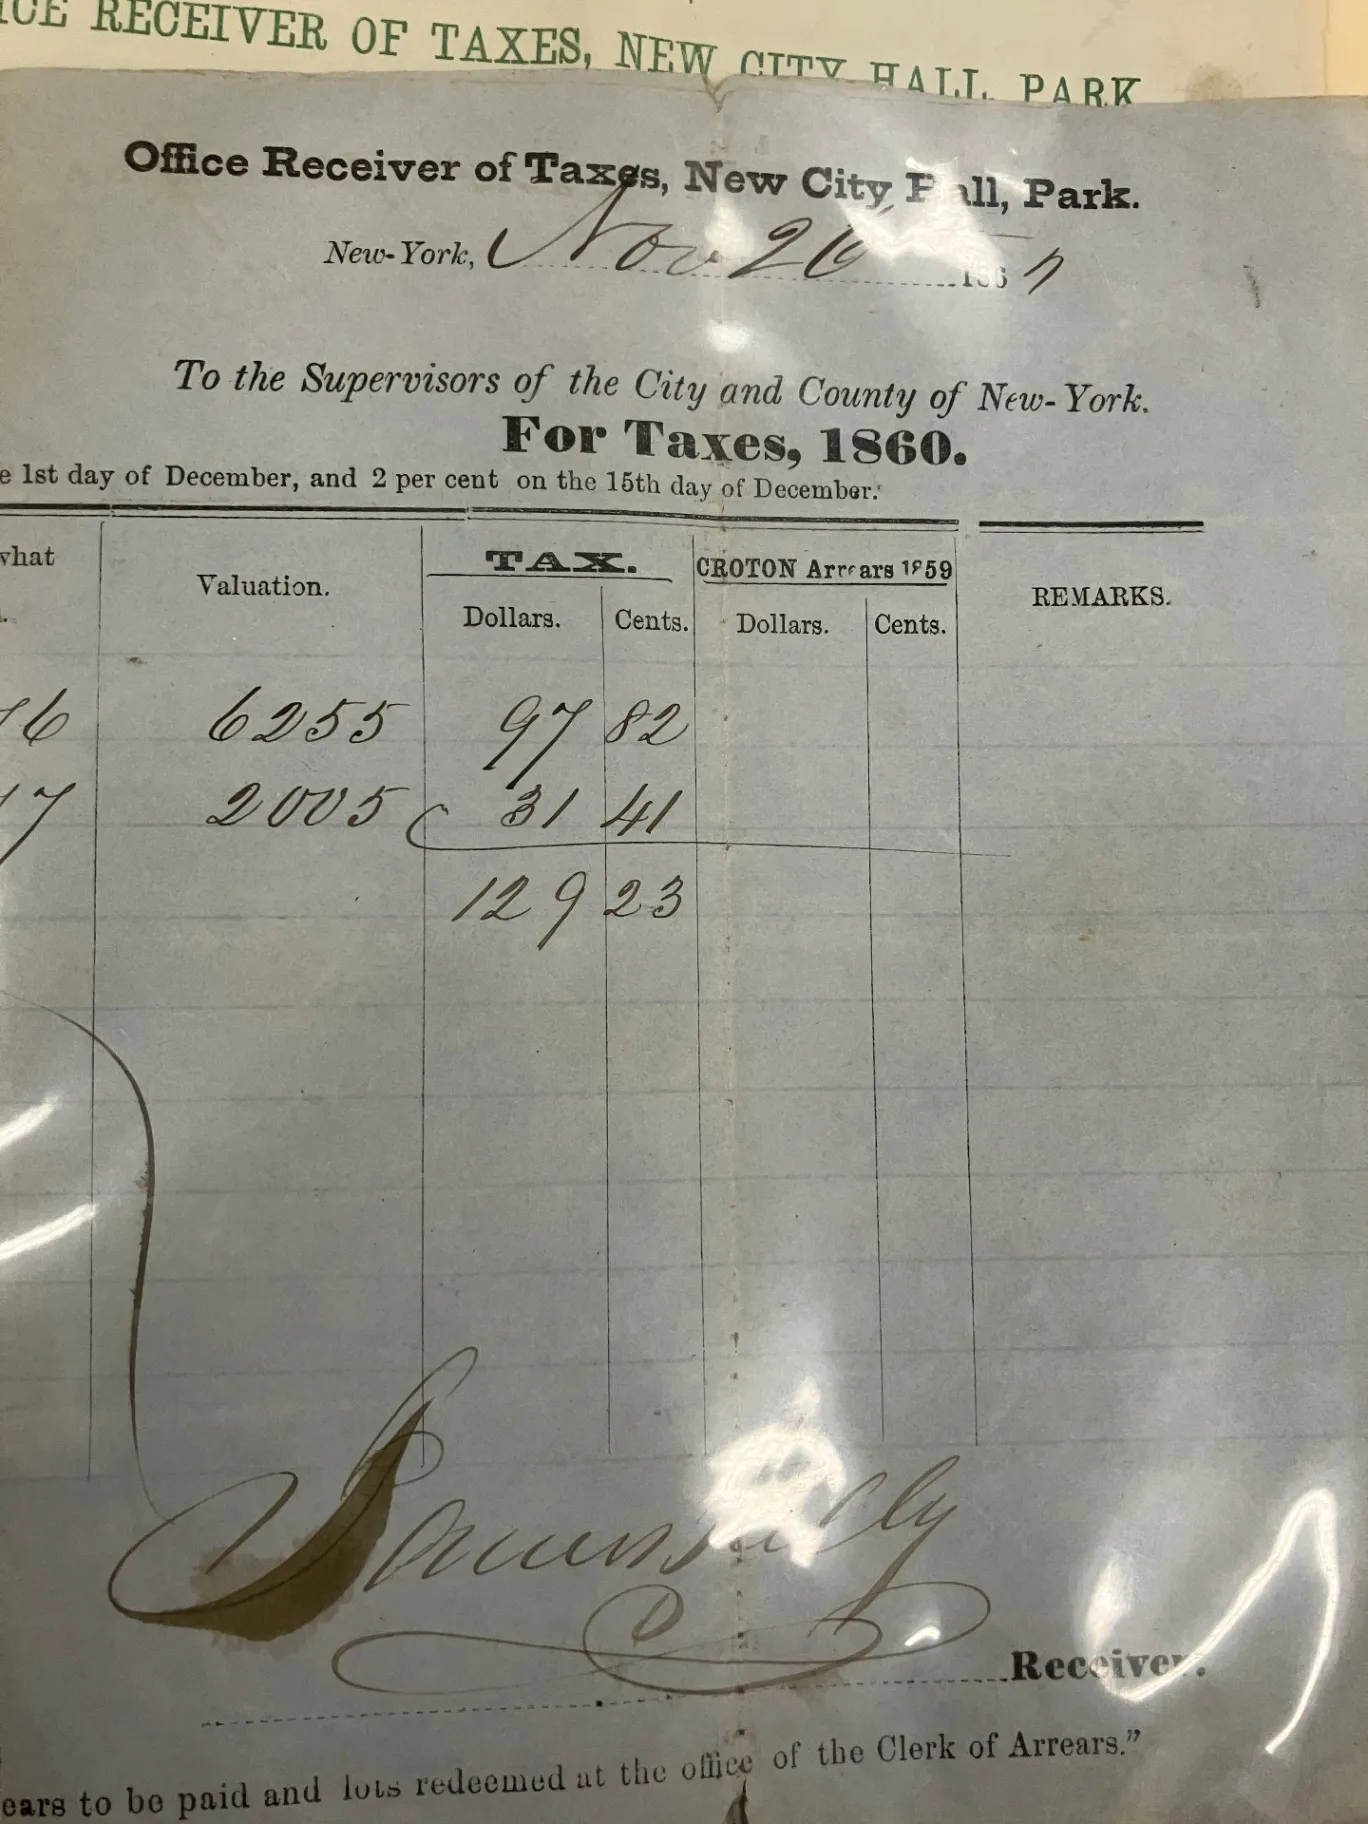 RECEIVER OF TAXES, NEW CITY HALL PARK
Office Receiver of Taxes, New City Hall, Park.
New-York, Nov 26 186
To the Supervisors of the City and County of New-York.
For Taxes, 1860.
e 1st day of December, and 2 per cent on the 15th day of December.
what Valuation. TAX. CROTON Arrears 1859 REMARKS.
Dollars. Cents. Dollars. Cents.
6 6255 97 82
7 2005 31 41
129 23
Receiver.
ears to be paid and lots redeemed at the office of the Clerk of Arrears."